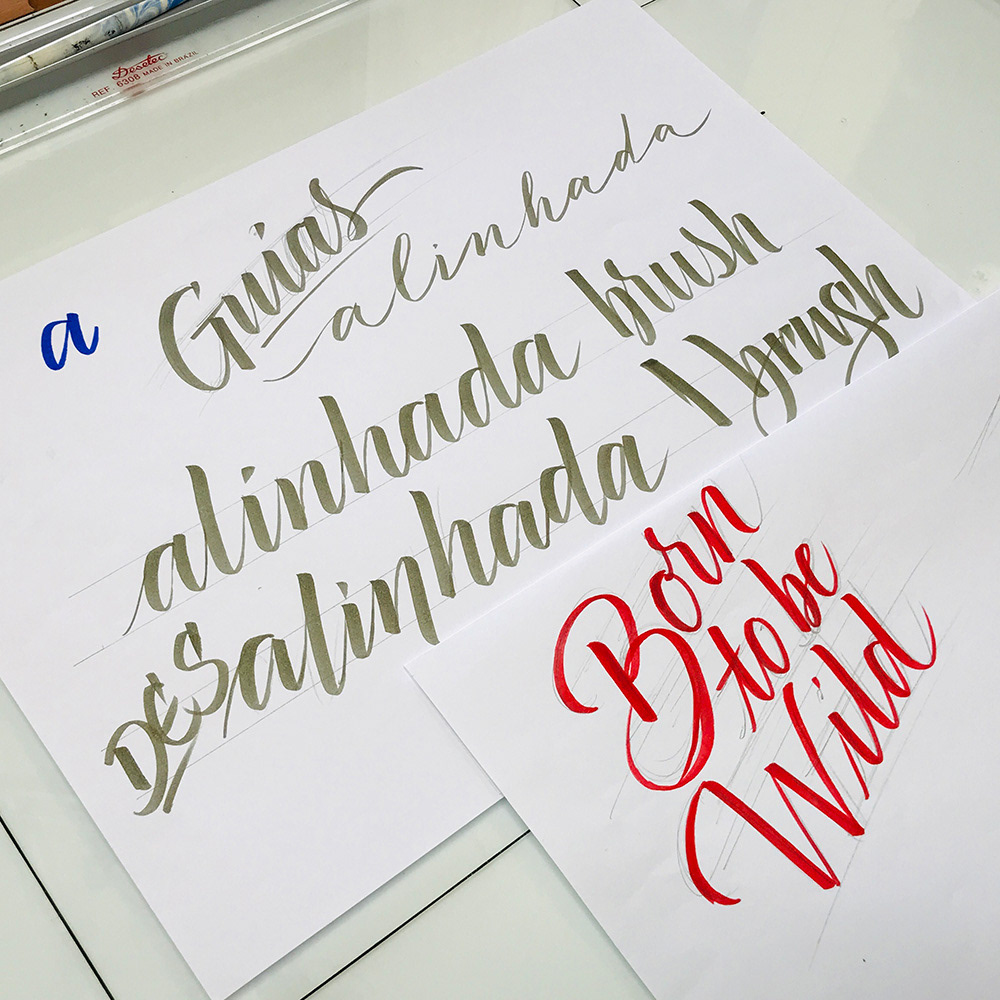 Desetec
REF 6308 MADE IN BRAZIL
a
Guias
alinhada
alinhada brush
Desalinhada brush
Born
to be
Wild